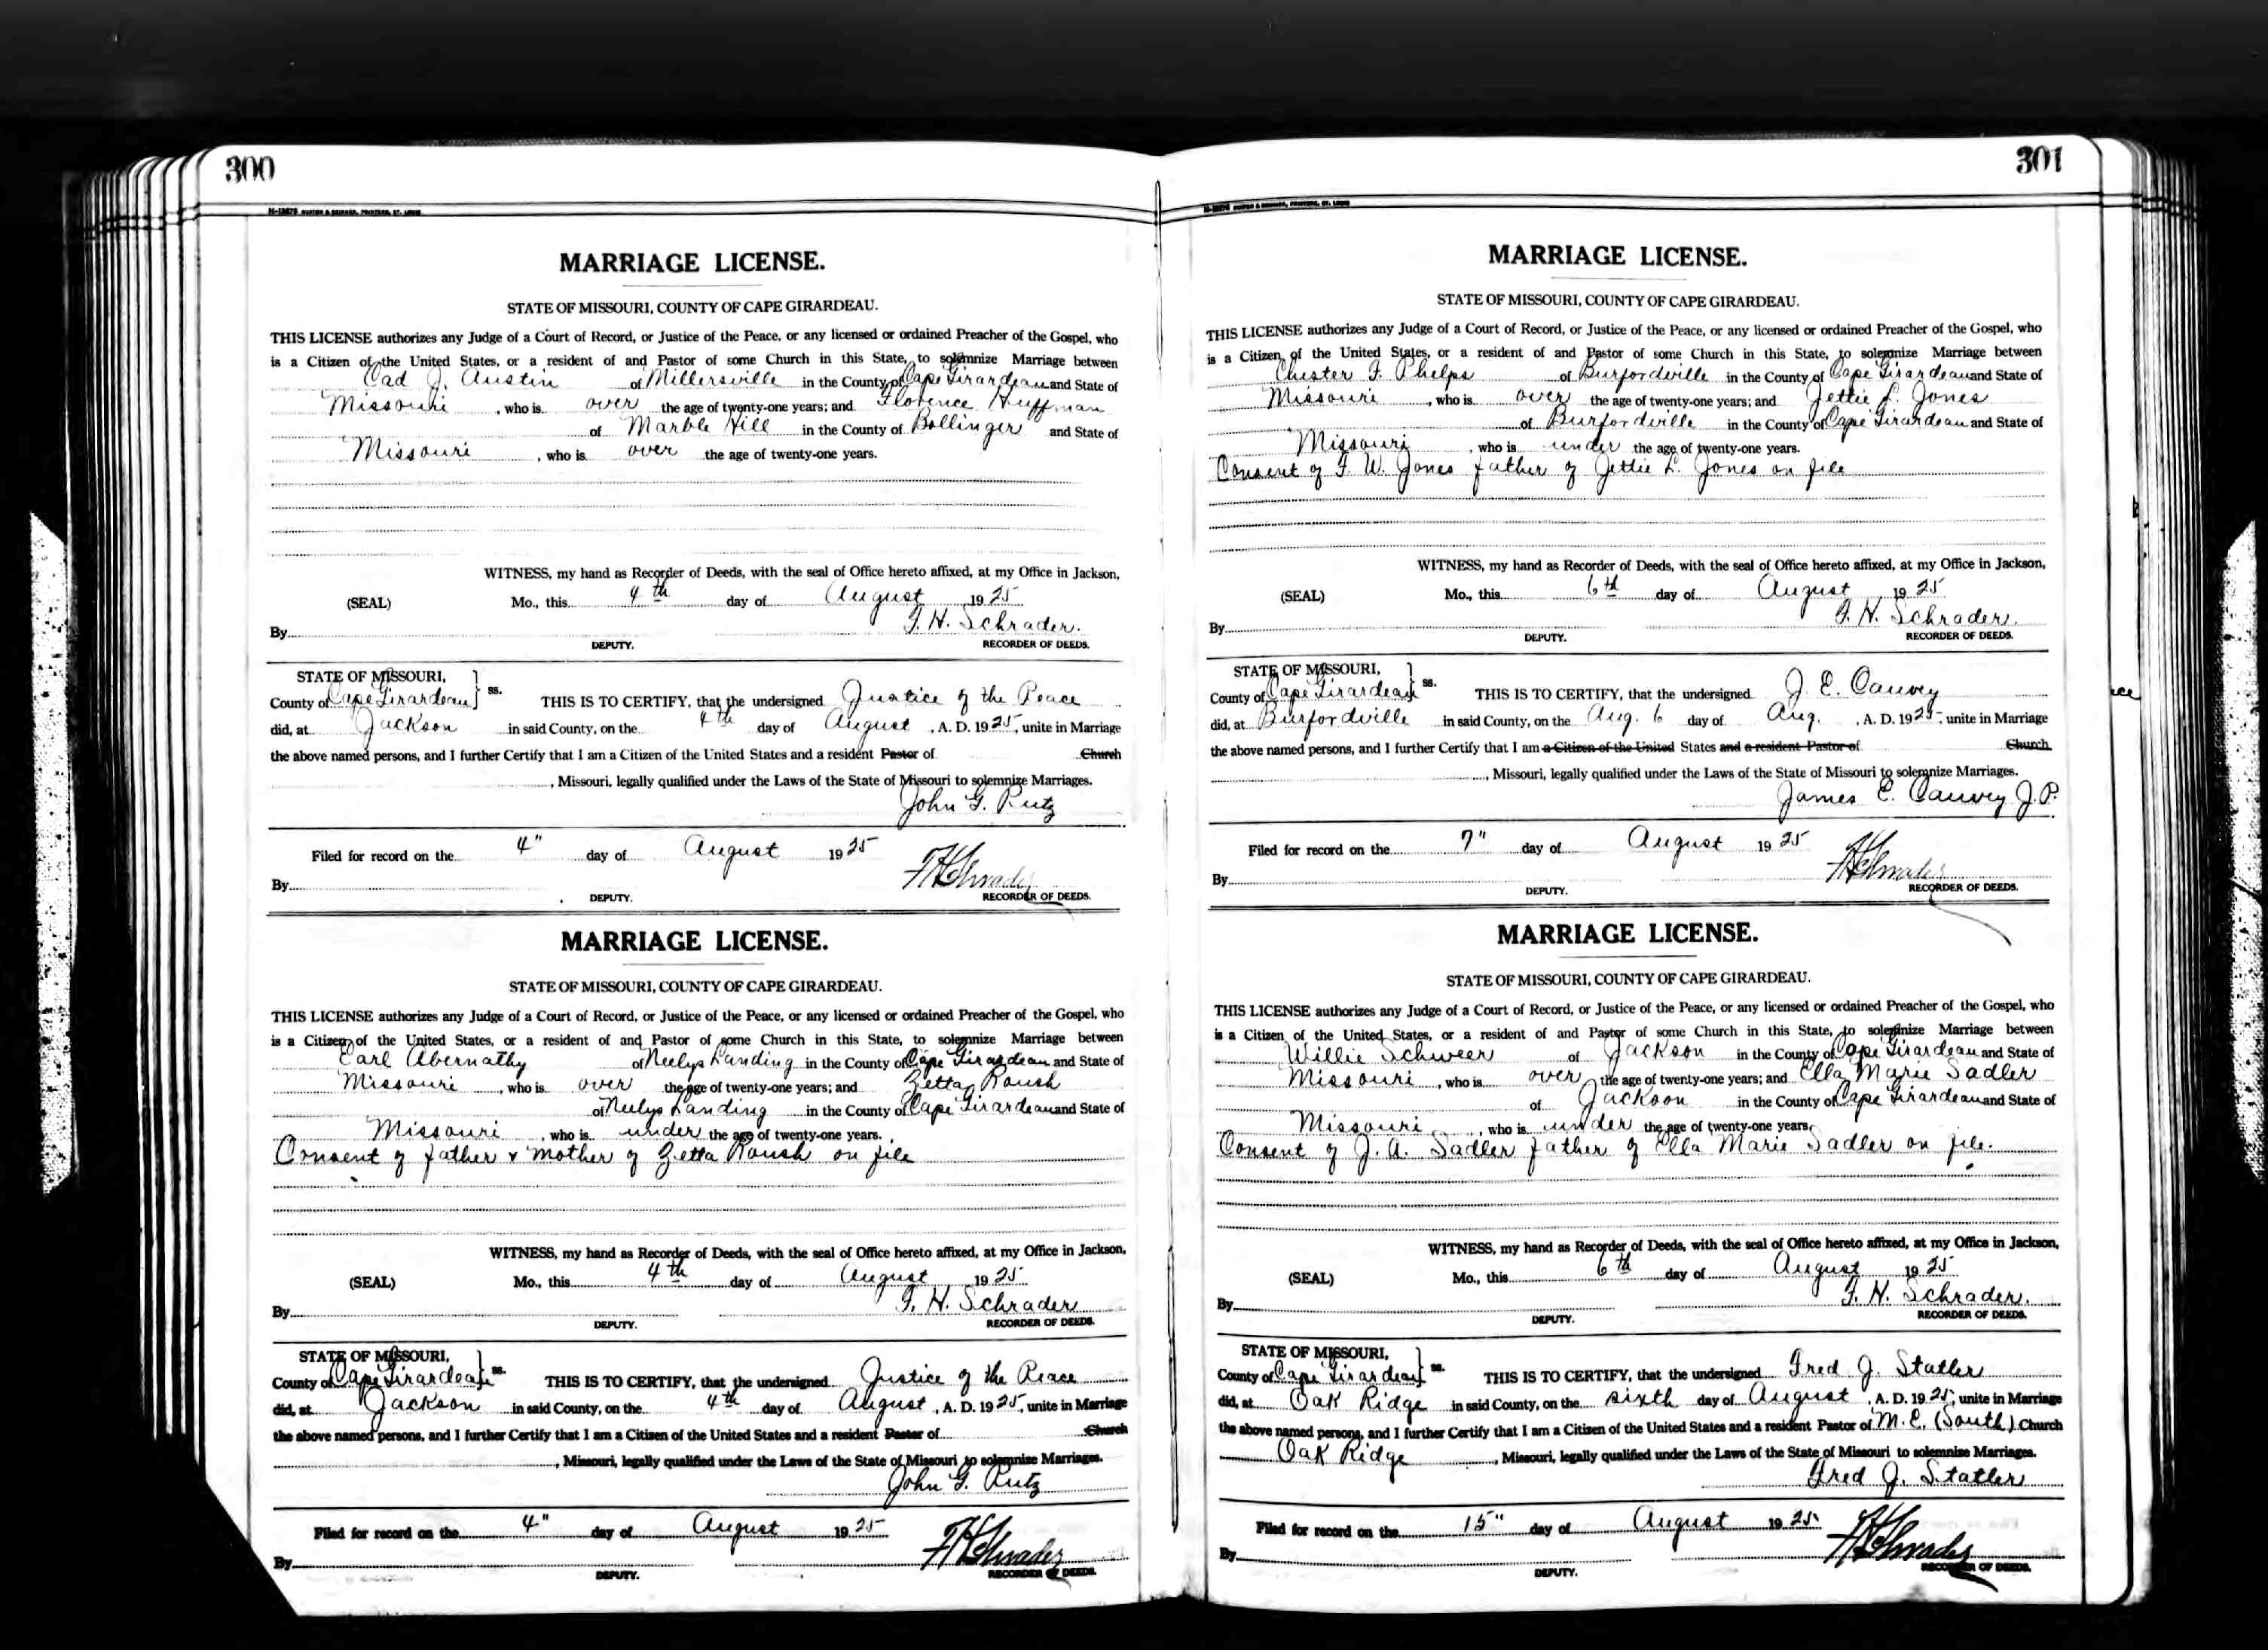 300
MARRIAGE LICENSE.
STATE OF MISSOURI, COUNTY OF CAPE GIRARDEAU.
THIS LICENSE authorizes any Judge of a Court of Record, or Justice of the Peace, or any licensed or ordained Preacher of the Gospel, who
is a Citizen of the United States, or a resident of and Pastor of some Church in this State, to solemnize Marriage between
Cad J. Austin of Millersville in the County of Cape Girardeau and State of
Missouri, who is over the age of twenty-one years; and Florence Huffman
of Marble Hill in the County of Bollinger and State of
Missouri, who is over the age of twenty-one years.
WITNESS, my hand as Recorder of Deeds, with the seal of Office hereto affixed, at my Office in Jackson,
(SEAL) Mo., this 4th day of August 1925
By F. H. Schrader.
DEPUTY. RECORDER OF DEEDS.
STATE OF MISSOURI,
County of Cape Girardeau } ss. THIS IS TO CERTIFY, that the undersigned Justice of the Peace
did, at Jackson in said County, on the 4th day of August, A. D. 1925, unite in Marriage
the above named persons, and I further Certify that I am a Citizen of the United States and a resident Pastor of Church
, Missouri, legally qualified under the Laws of the State of Missouri to solemnize Marriages.
John G. Putz
Filed for record on the 4" day of August 1925
By F H Schrader
DEPUTY. RECORDER OF DEEDS.
MARRIAGE LICENSE.
STATE OF MISSOURI, COUNTY OF CAPE GIRARDEAU.
THIS LICENSE authorizes any Judge of a Court of Record, or Justice of the Peace, or any licensed or ordained Preacher of the Gospel, who
is a Citizen of the United States, or a resident of and Pastor of some Church in this State, to solemnize Marriage between
Earl Abernathy of Neelys Landing in the County of Cape Girardeau and State of
Missouri, who is over the age of twenty-one years; and Zetta Roush
of Neelys Landing in the County of Cape Girardeau and State of
Missouri, who is under the age of twenty-one years.
Consent of father & mother of Zetta Roush on file
WITNESS, my hand as Recorder of Deeds, with the seal of Office hereto affixed, at my Office in Jackson,
(SEAL) Mo., this 4th day of August 1925
By F. H. Schrader
DEPUTY. RECORDER OF DEEDS.
STATE OF MISSOURI,
County of Cape Girardeau } ss. THIS IS TO CERTIFY, that the undersigned Justice of the Peace
did, at Jackson in said County, on the 4th day of August, A. D. 1925, unite in Marriage
the above named persons, and I further Certify that I am a Citizen of the United States and a resident Pastor of Church
, Missouri, legally qualified under the Laws of the State of Missouri to solemnize Marriages.
John G. Putz
Filed for record on the 4" day of August 1925
By F H Schrader
DEPUTY. RECORDER OF DEEDS.
301
MARRIAGE LICENSE.
STATE OF MISSOURI, COUNTY OF CAPE GIRARDEAU.
THIS LICENSE authorizes any Judge of a Court of Record, or Justice of the Peace, or any licensed or ordained Preacher of the Gospel, who
is a Citizen of the United States, or a resident of and Pastor of some Church in this State, to solemnize Marriage between
Chester F. Phelps of Burfordville in the County of Cape Girardeau and State of
Missouri, who is over the age of twenty-one years; and Jettie L. Jones
of Burfordville in the County of Cape Girardeau and State of
Missouri, who is under the age of twenty-one years.
Consent of F. W. Jones father of Jettie L. Jones on file
WITNESS, my hand as Recorder of Deeds, with the seal of Office hereto affixed, at my Office in Jackson,
(SEAL) Mo., this 6th day of August, 1925
By F. H. Schrader.
DEPUTY. RECORDER OF DEEDS.
STATE OF MISSOURI,
County of Cape Girardeau } ss. THIS IS TO CERTIFY, that the undersigned J. E. Cauvey
did, at Burfordville in said County, on the Aug. 6 day of Aug., A. D. 1925, unite in Marriage
the above named persons, and I further Certify that I am a Citizen of the United States and a resident Pastor of Church
, Missouri, legally qualified under the Laws of the State of Missouri to solemnize Marriages.
James E. Cauvey J.P.
Filed for record on the 7" day of August 1925
By F H Schrader
DEPUTY. RECORDER OF DEEDS.
MARRIAGE LICENSE.
STATE OF MISSOURI, COUNTY OF CAPE GIRARDEAU.
THIS LICENSE authorizes any Judge of a Court of Record, or Justice of the Peace, or any licensed or ordained Preacher of the Gospel, who
is a Citizen of the United States, or a resident of and Pastor of some Church in this State, to solemnize Marriage between
Willie Schweer of Jackson in the County of Cape Girardeau and State of
Missouri, who is over the age of twenty-one years; and Ella Marie Sadler
of Jackson in the County of Cape Girardeau and State of
Missouri, who is under the age of twenty-one years.
Consent of J. A. Sadler father of Ella Marie Sadler on file.
WITNESS, my hand as Recorder of Deeds, with the seal of Office hereto affixed, at my Office in Jackson,
(SEAL) Mo., this 6th day of August 1925
By F. H. Schrader.
DEPUTY. RECORDER OF DEEDS.
STATE OF MISSOURI,
County of Cape Girardeau } ss. THIS IS TO CERTIFY, that the undersigned Fred J. Statler
did, at Oak Ridge in said County, on the sixth day of August, A. D. 1925, unite in Marriage
the above named persons, and I further Certify that I am a Citizen of the United States and a resident Pastor of M. E. (South) Church
Oak Ridge, Missouri, legally qualified under the Laws of the State of Missouri to solemnize Marriages.
Fred J. Statler
Filed for record on the 15" day of August 1925
By F H Schrader
DEPUTY. RECORDER OF DEEDS.